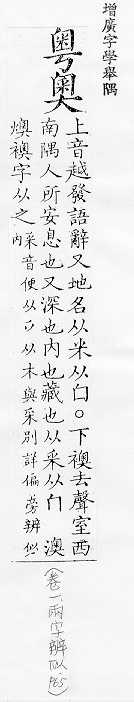 增廣字學舉隅
粵奧
上音越發語辭又地名从米从囗。下襖去聲室西
南隅人所安息也又深也內也藏也从釆从冂 澳
燠襖字从之 內釆音便从ㄗ从木與采別詳偏旁辨似
(卷一.兩字辨似.165)